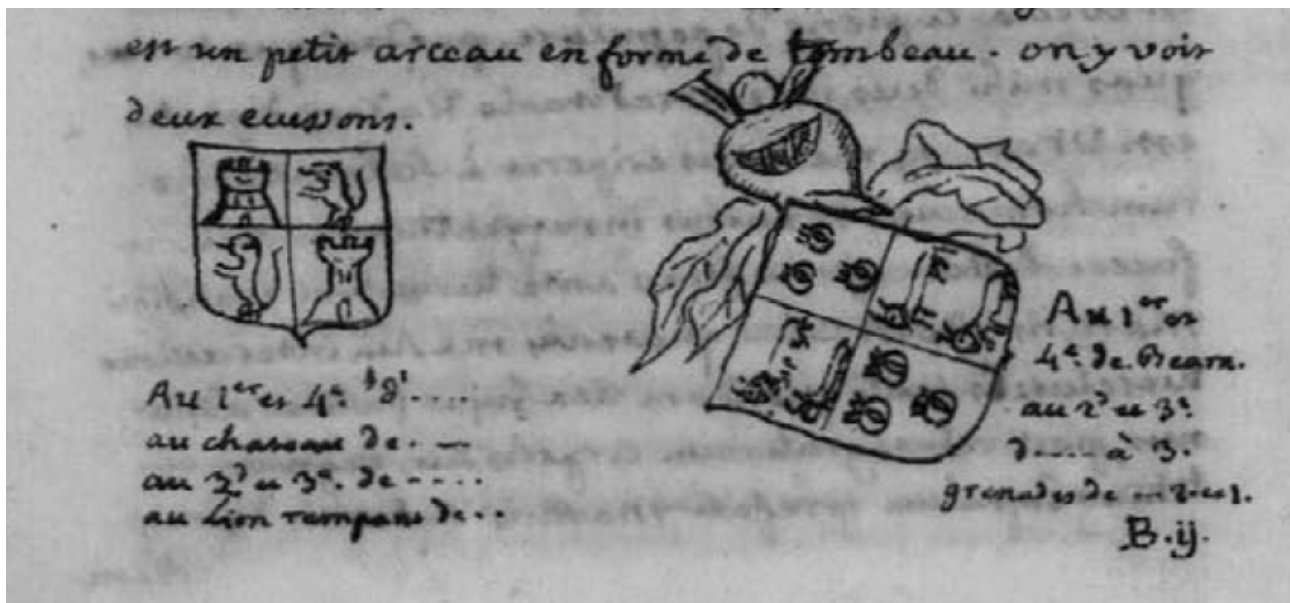 est un petit arceau en forme de tombeau. on y voit
deux ecussons.
Au 1er et 4e. d'....
au chateau de. -
au 2d et 3e. de ----
au Lion rampant de..
Au 1er et
4e. de Bearn.
au 2d et 3e.
d---- à 3.
grenades de ... 2. et 1.
B. ij.